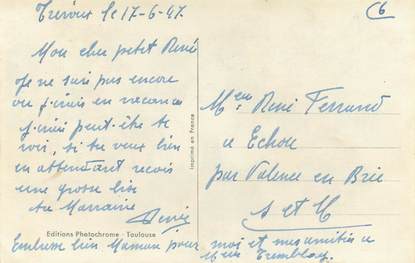 Trévoux le 17-6-47.
C6
Mon cher petit René
Je ne sais pas encore
ou j'irais en vacance
j'irais peut-être te
voir, si tu veux bien
en attendant recois
une grosse bise
ta Marraine
Editions Photochrome - Toulouse
Imprimé en France
René Ferrand
a Echou
par Valence en Brie
S et M
Embrasse bien Maman pour moi et mes amitiés a
Tremblay.